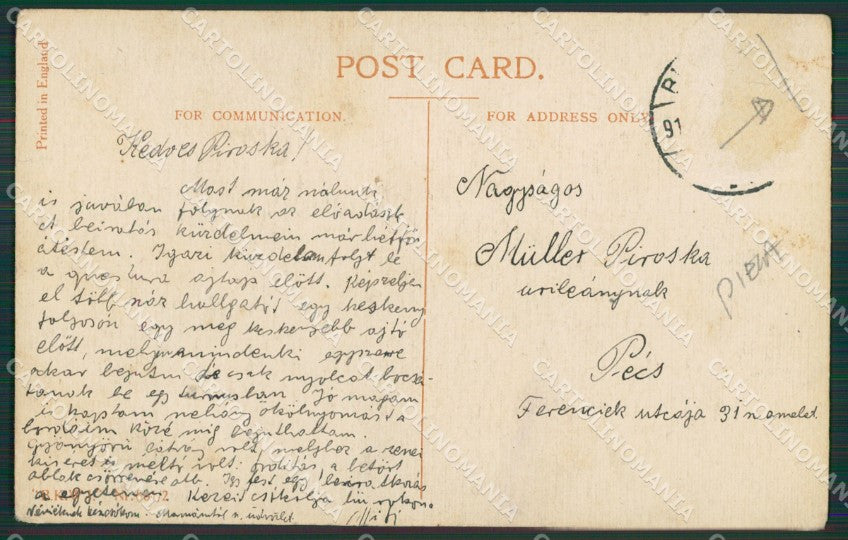 POST CARD.
Printed in England
FOR COMMUNICATION.
FOR ADDRESS ONLY
91
Kedves Piroska!
Most már nálunk
is javában folynak az előadások
A beiratás küzdelmein már hétfőn
átestem. Igazi küzdelem folyt le
a quaestura ajtaja előtt. Képzelje
el több száz hallgatót egy keskeny
folyosón egy még keskenyebb ajtó
előtt, melyen mindenki egyszerre
akar bejutni de csak nyolcat bocsá-
tanak be egy turnusban. Jó magam
is kaptam néhány ököl nyomást a
bordáim közé míg bejuthattam.
Gyönyörű látvány volt, melyhez a zenei
kíséret is méltó volt: ordítás, a betört
ablak csörömpölése stb. Így
a egyetemen. Kezeit csókolja
Nagyságos
Müller Piroska
urileánynak
Pécs
Ferenciek utcája 31 emelet.
CARTOLINOMANIA